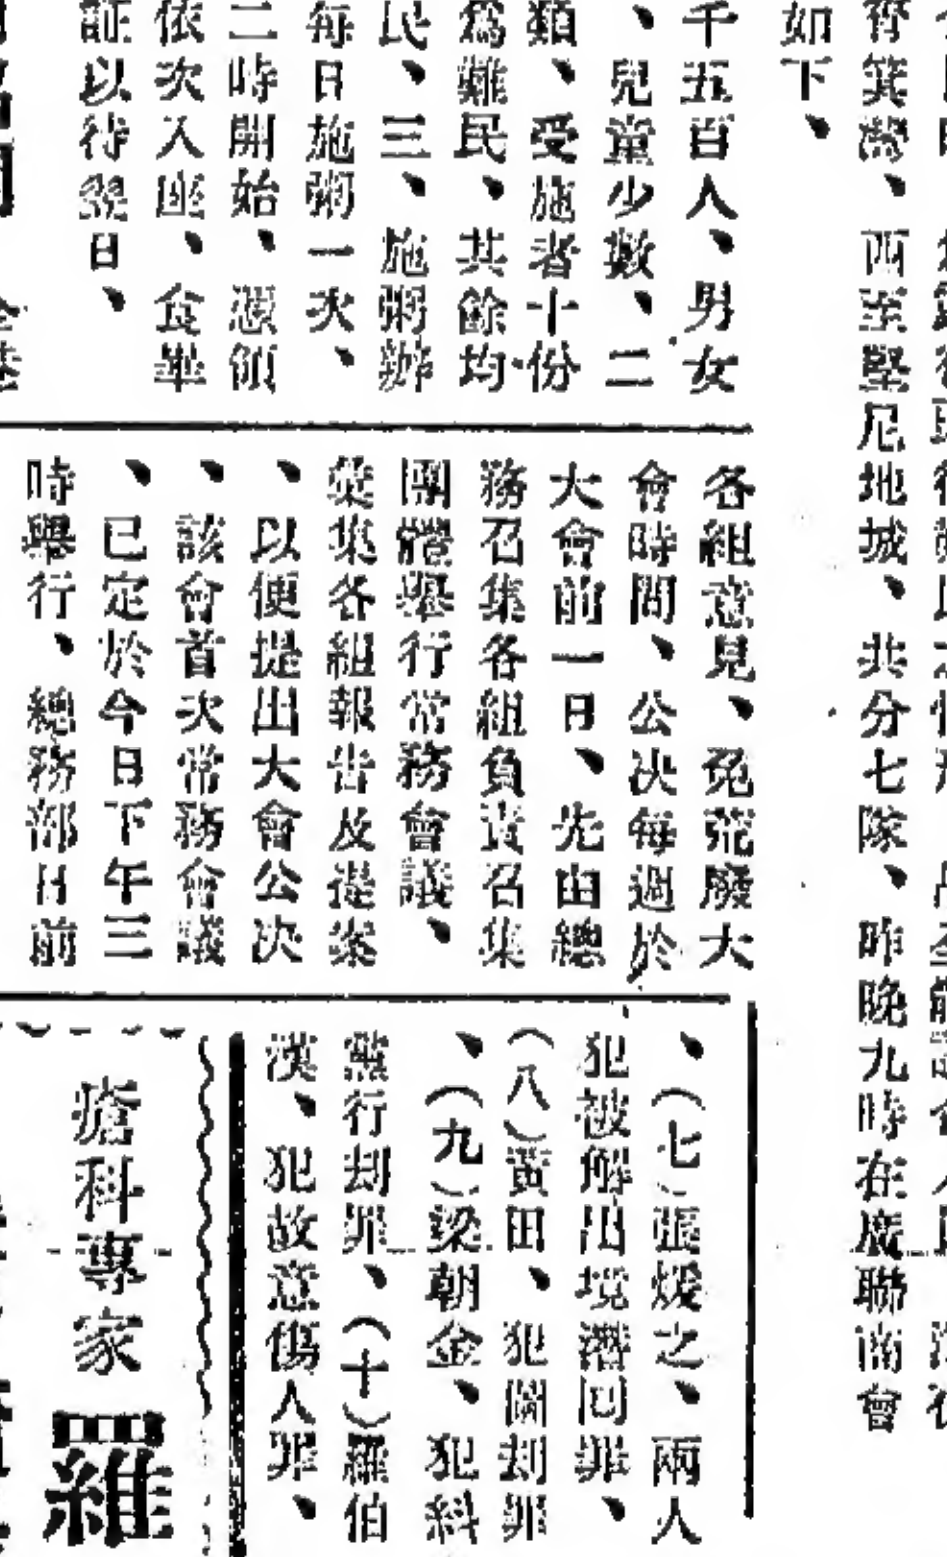 如下、
筲箕灣、西至堅尼地城、共分七隊、昨晚九時在廣聯商會
千五百人、男女
、兒童少數、二
類、受施者十份
為難民、其餘均
民、三、施粥辦
每日施粥一次、
二時開始、憑領
依次入座、食畢
証以待翌日、
各組意見、免荒廢大
會時間、公决每週於
大會前一日、先由總
務召集各組負責召集
團體舉行常務會議、
彙集各組報告及提案
、以便提出大會公决
、該會首次常務會議
、已定於今日下午三
時舉行、總務部日前
、(七)張煖之、兩人
犯被解出境潛回罪、
(八)黃田、犯圖刦罪
、(九)梁朝金、犯糾
黨行刦罪、(十)羅伯
漢、犯故意傷人罪、
瘡科專家羅